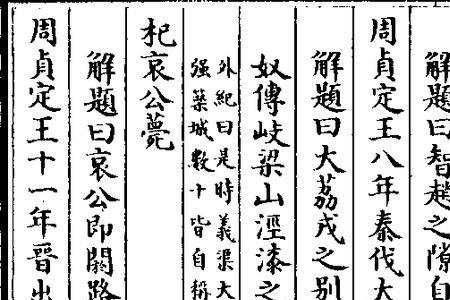 解題曰智趙之隙自
周貞定王八年秦伐大
解題曰大荔戎之别
奴傳岐梁山涇漆之
外紀曰是時義渠大
强築城數十皆自稱
杞哀公薨
解題曰哀公即閼路
周貞定王十一年晉出